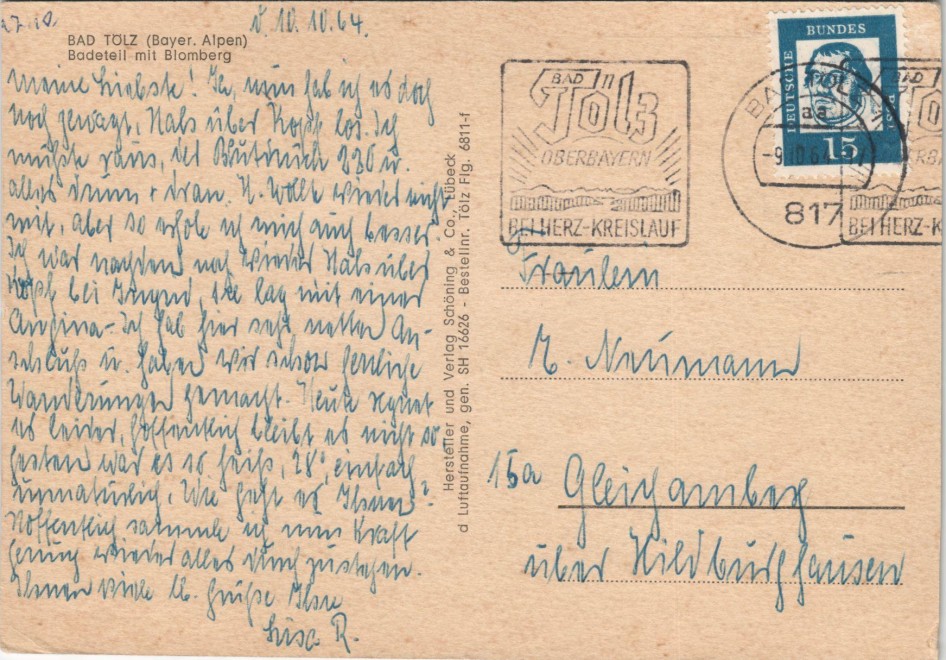 d. 10.10.64.
BAD TÖLZ (Bayer. Alpen)
Badeteil mit Blomberg
meine Liebste! Ja, nun hab ich es doch
noch gewagt, Hals über Kopf los. Ich
mußte raus, der Blutdruck 220 u.
alles drum + dran. H. wollt wieder nicht
mit, aber so erhole ich mich auch besser.
Ich war nachdem noch wieder Hals über
Kopf bei Ingrid, sie lag mit einer
Angina - Ich hab hier sehr netten An-
schluß u. haben wir schon herrliche
Wanderungen gemacht. Heute regnet
es leider, hoffentlich bleibt es nicht so
gestern war es so heiß, 28°, einfach
unnatürlich. Wie geht es Ihnen?
Hoffentlich sammle ich nun Kraft
genug wieder alles durchzustehen.
Ihnen viele lb. Grüße Ihre
Lisa R.
Hersteller und Verlag Schöning & Co., Lübeck
d Luftaufnahme, gen. SH 16626 - Bestellnr. Tölz Flg. 6811-f
BAD
Tölz
OBERBAYERN
BEI HERZ-KREISLAUF
DEUTSCHE BUNDES
15
BAD TÖLZ
aa
-9.10.64
817
BEI HERZ-K
Fräulein
E. Neumann
15a Gleichamberg
über Hildburghausen